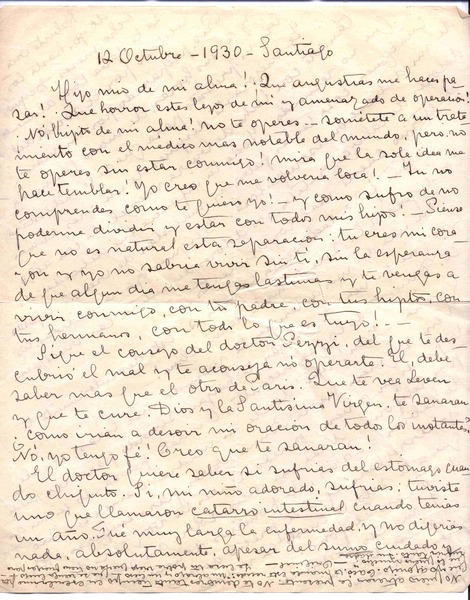 12 Octubre - 1930 - Santiago
Hijo mio de mi alma! ¡Que angustias me haces pa
sar! ¡Que horror estes lejos de mi y amenazado de operación!
No, hijito de mi alma! no te operes - sométete a un trata
mimento con el medico mas notable del mundo, pero no
te operes sin estar conmigo! mira que la sola idea me
hace temblar! Yo creo que me volveria loca! - Tu no
comprendes como te quiero yo! - y como sufro de no
poderme dividir y estar con todos mis hijos! - Piense
que no es natural esta separacion: tu eres mi cora-
zon y yo no sabria vivir sin ti, sin la esperanza
de que algun dia me tengas lastima y te vengas a
vivir conmigo, con tu padre, con tus hijitos, con
tus hermanos, con todo lo que es tuyo! -
Sigue el consejo del doctor que te des
cubrió el mal y te aconseja no operarte. El debe
saber mas que el otro de Paris. Que te vea
y que te cure. Dios y la Santísima Virgen, te sanaran
como iran a desoir mi oracion de todos los instantes?
No, yo tengo fé! Creo que te sanaran!
El doctor quiere saber si sufrias del estómago cuan
do chiquito. Si, mi niño adorado, sufrias; tuviste
uno que llamaron catarro intestinal cuando tenias
un año. Fué muy larga la enfermedad, y no digerias
nada, absolutamente, apesar del sumo cuidado y